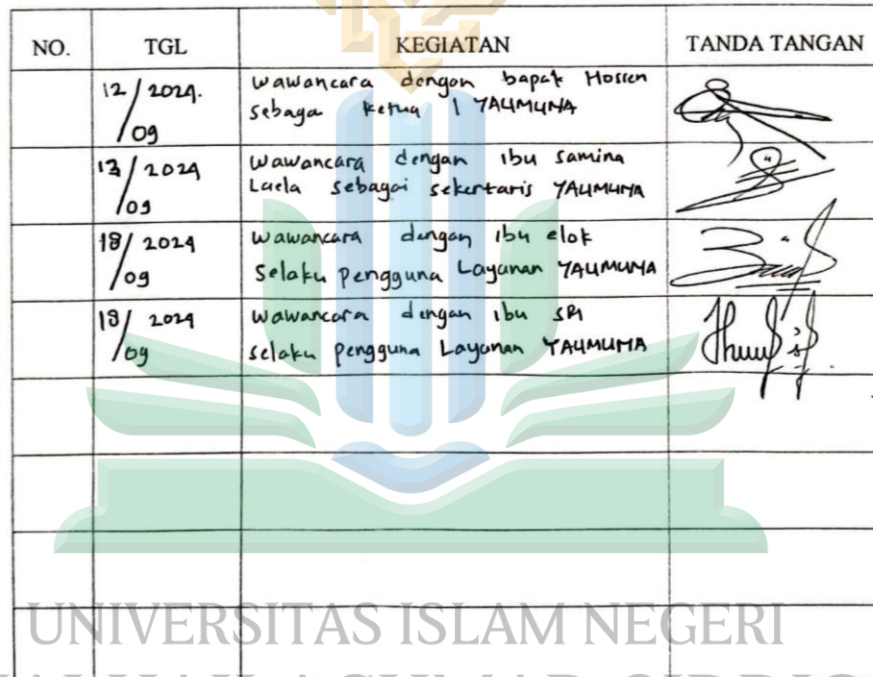 NO. TGL KEGIATAN TANDA TANGAN
12/09 2024. wawancara dengan bapak Hossen
sebaga ketua 1 YAUMUNA
13/09 2024 wawancara dengan ibu samina
Laela sebagai sekertaris YAUMUNA
18/09 2024 wawancara dengan ibu elok
selaku pengguna Layanan YAUMUNA
18/09 2024 wawancara dengan ibu SRI
selaku pengguna Layanan YAUMUNA
UNIVERSITAS ISLAM NEGERI